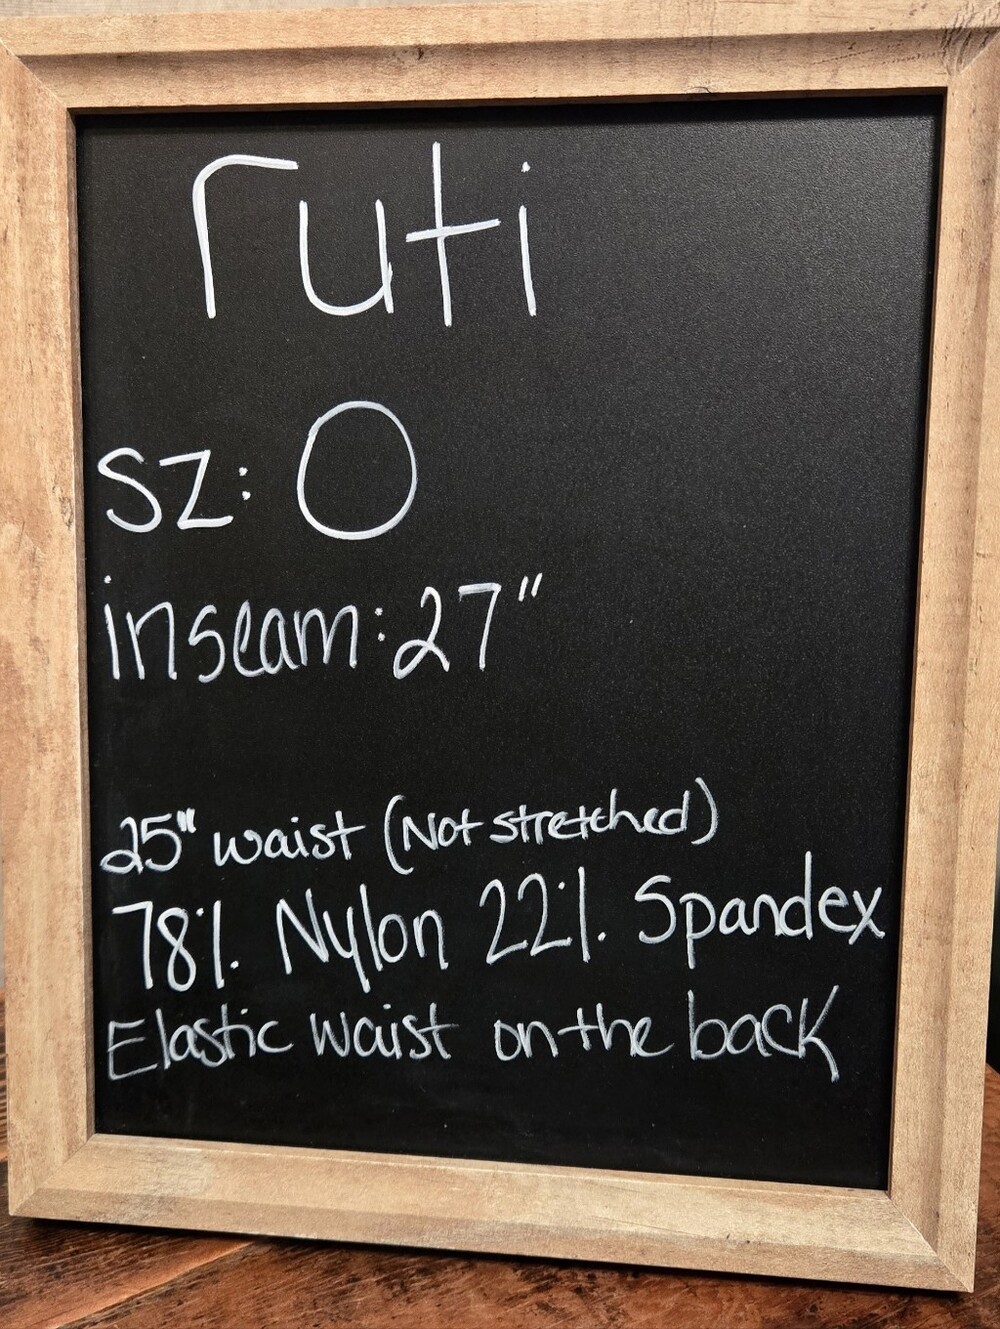 ruti
sz: 0
inseam: 27"
25" waist (Not stretched)
78% Nylon 22% Spandex
Elastic waist on the back